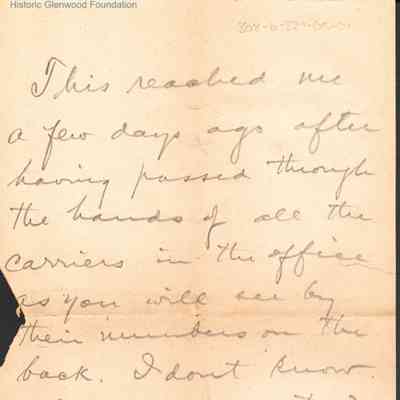 Historic Glenwood Foundation
This reached me
a few days ago after
having passed through
the hands of all the
carriers in the office
as you will see by
their numbers on the
back. I dont know